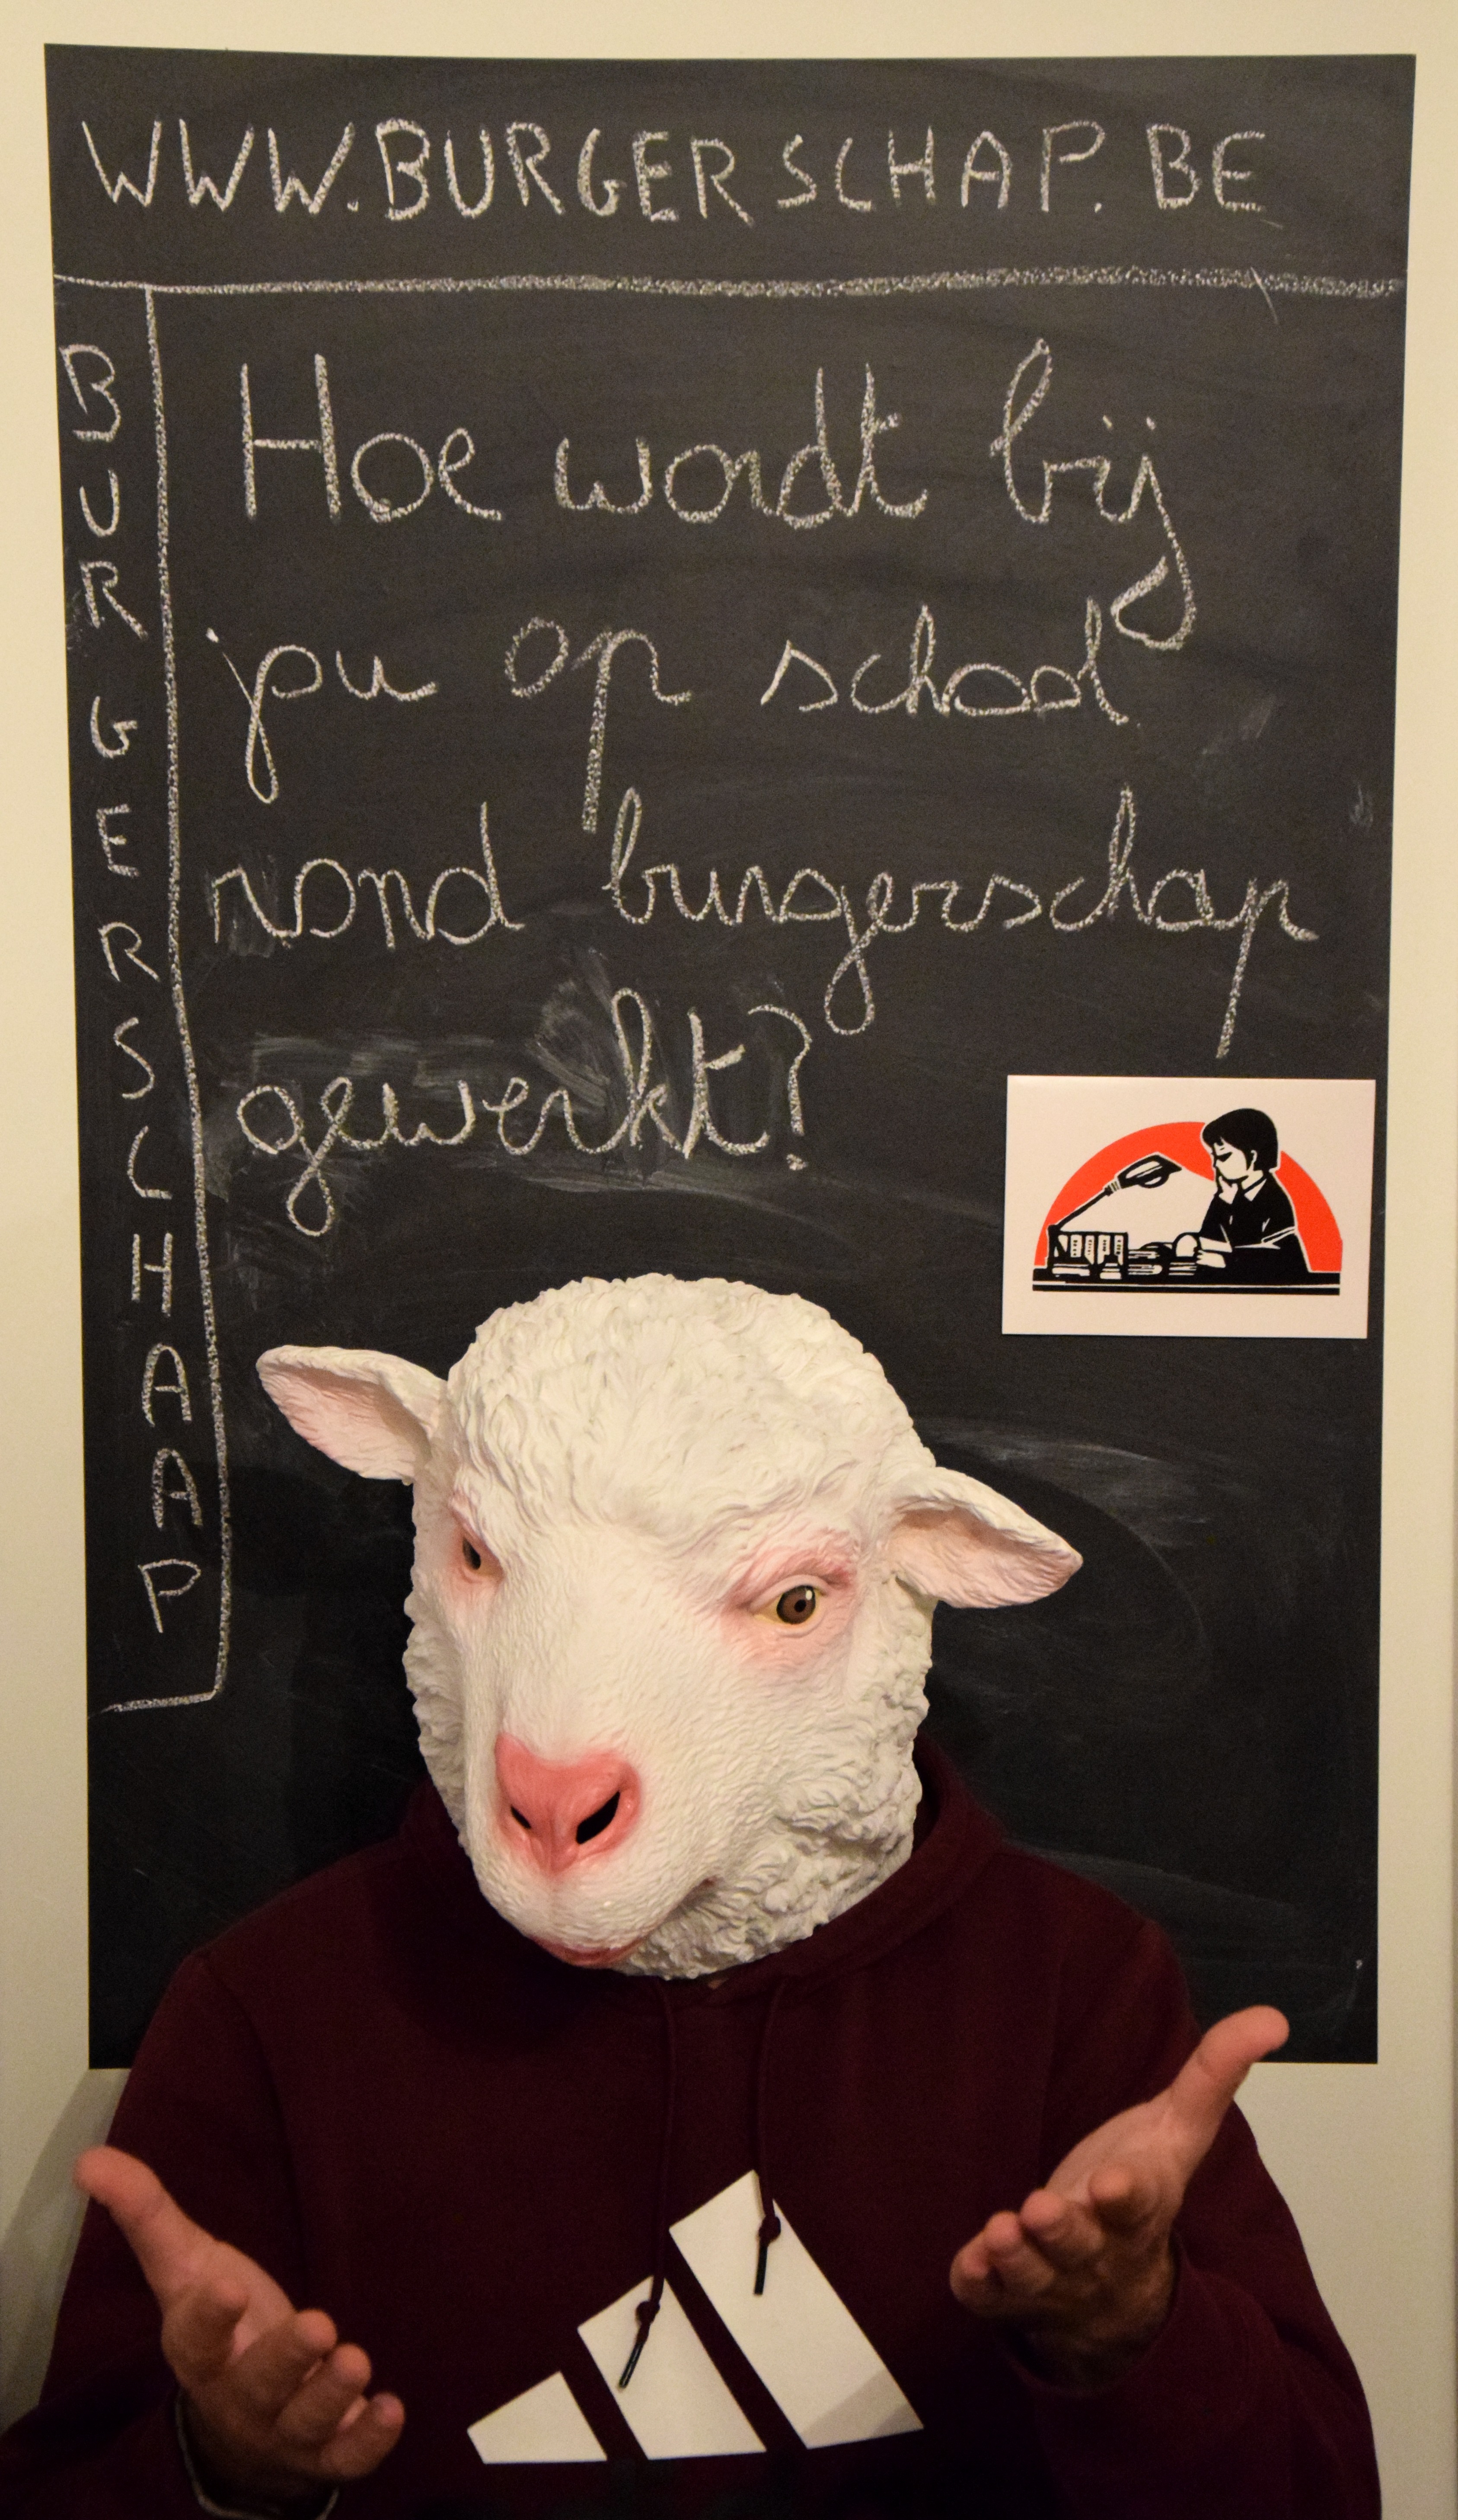 WWW.BURGERSCHAP.BE
BURGERSCHAAP
Hoe wordt bij
jou op school
rond burgerschap
gewerkt?